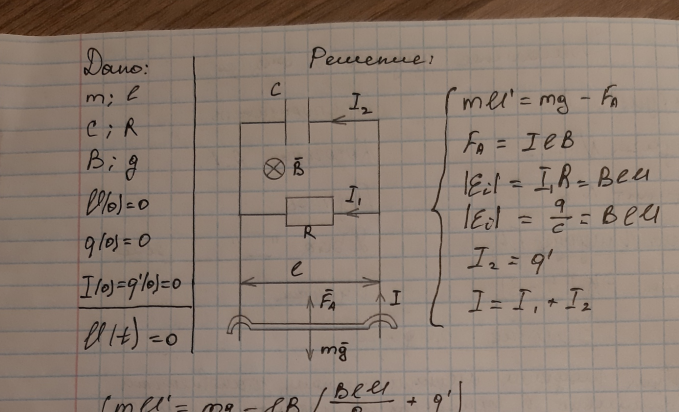 Дано:
m; l
C; R
B; g
U(0)=0
q(0)=0
I(0)=q'(0)=0
U(t)=0
Решение:
C
I₂
B̄
I₁
R
l
F̄A
I
mḡ
mU' = mg - FA
FA = IlB
|εi| = I₁R = BlU
|εi| = q/c = BlU
I₂ = q'
I = I₁ + I₂
mU' = mg - lB (BlU/R + q')